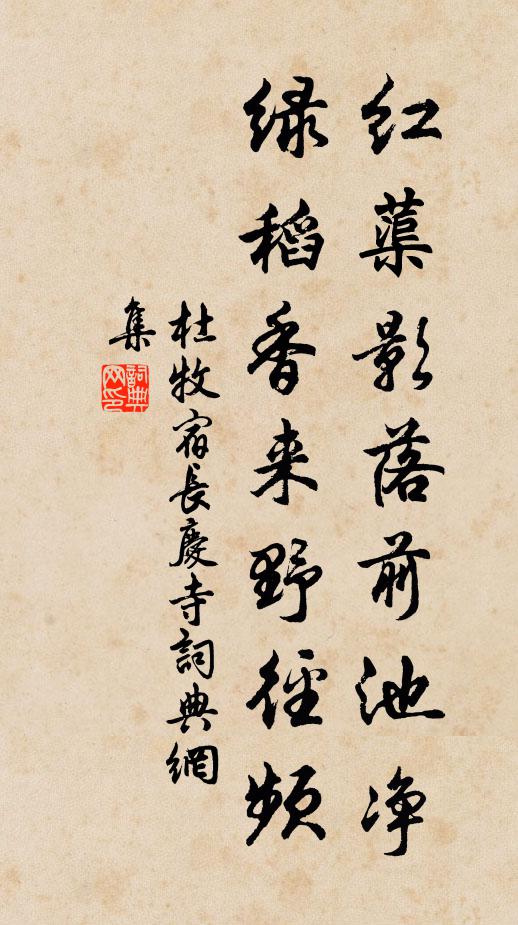 红蕖影落前池净
绿稻香来野径频
杜牧宿長慶寺詞典網
集
詞典網印